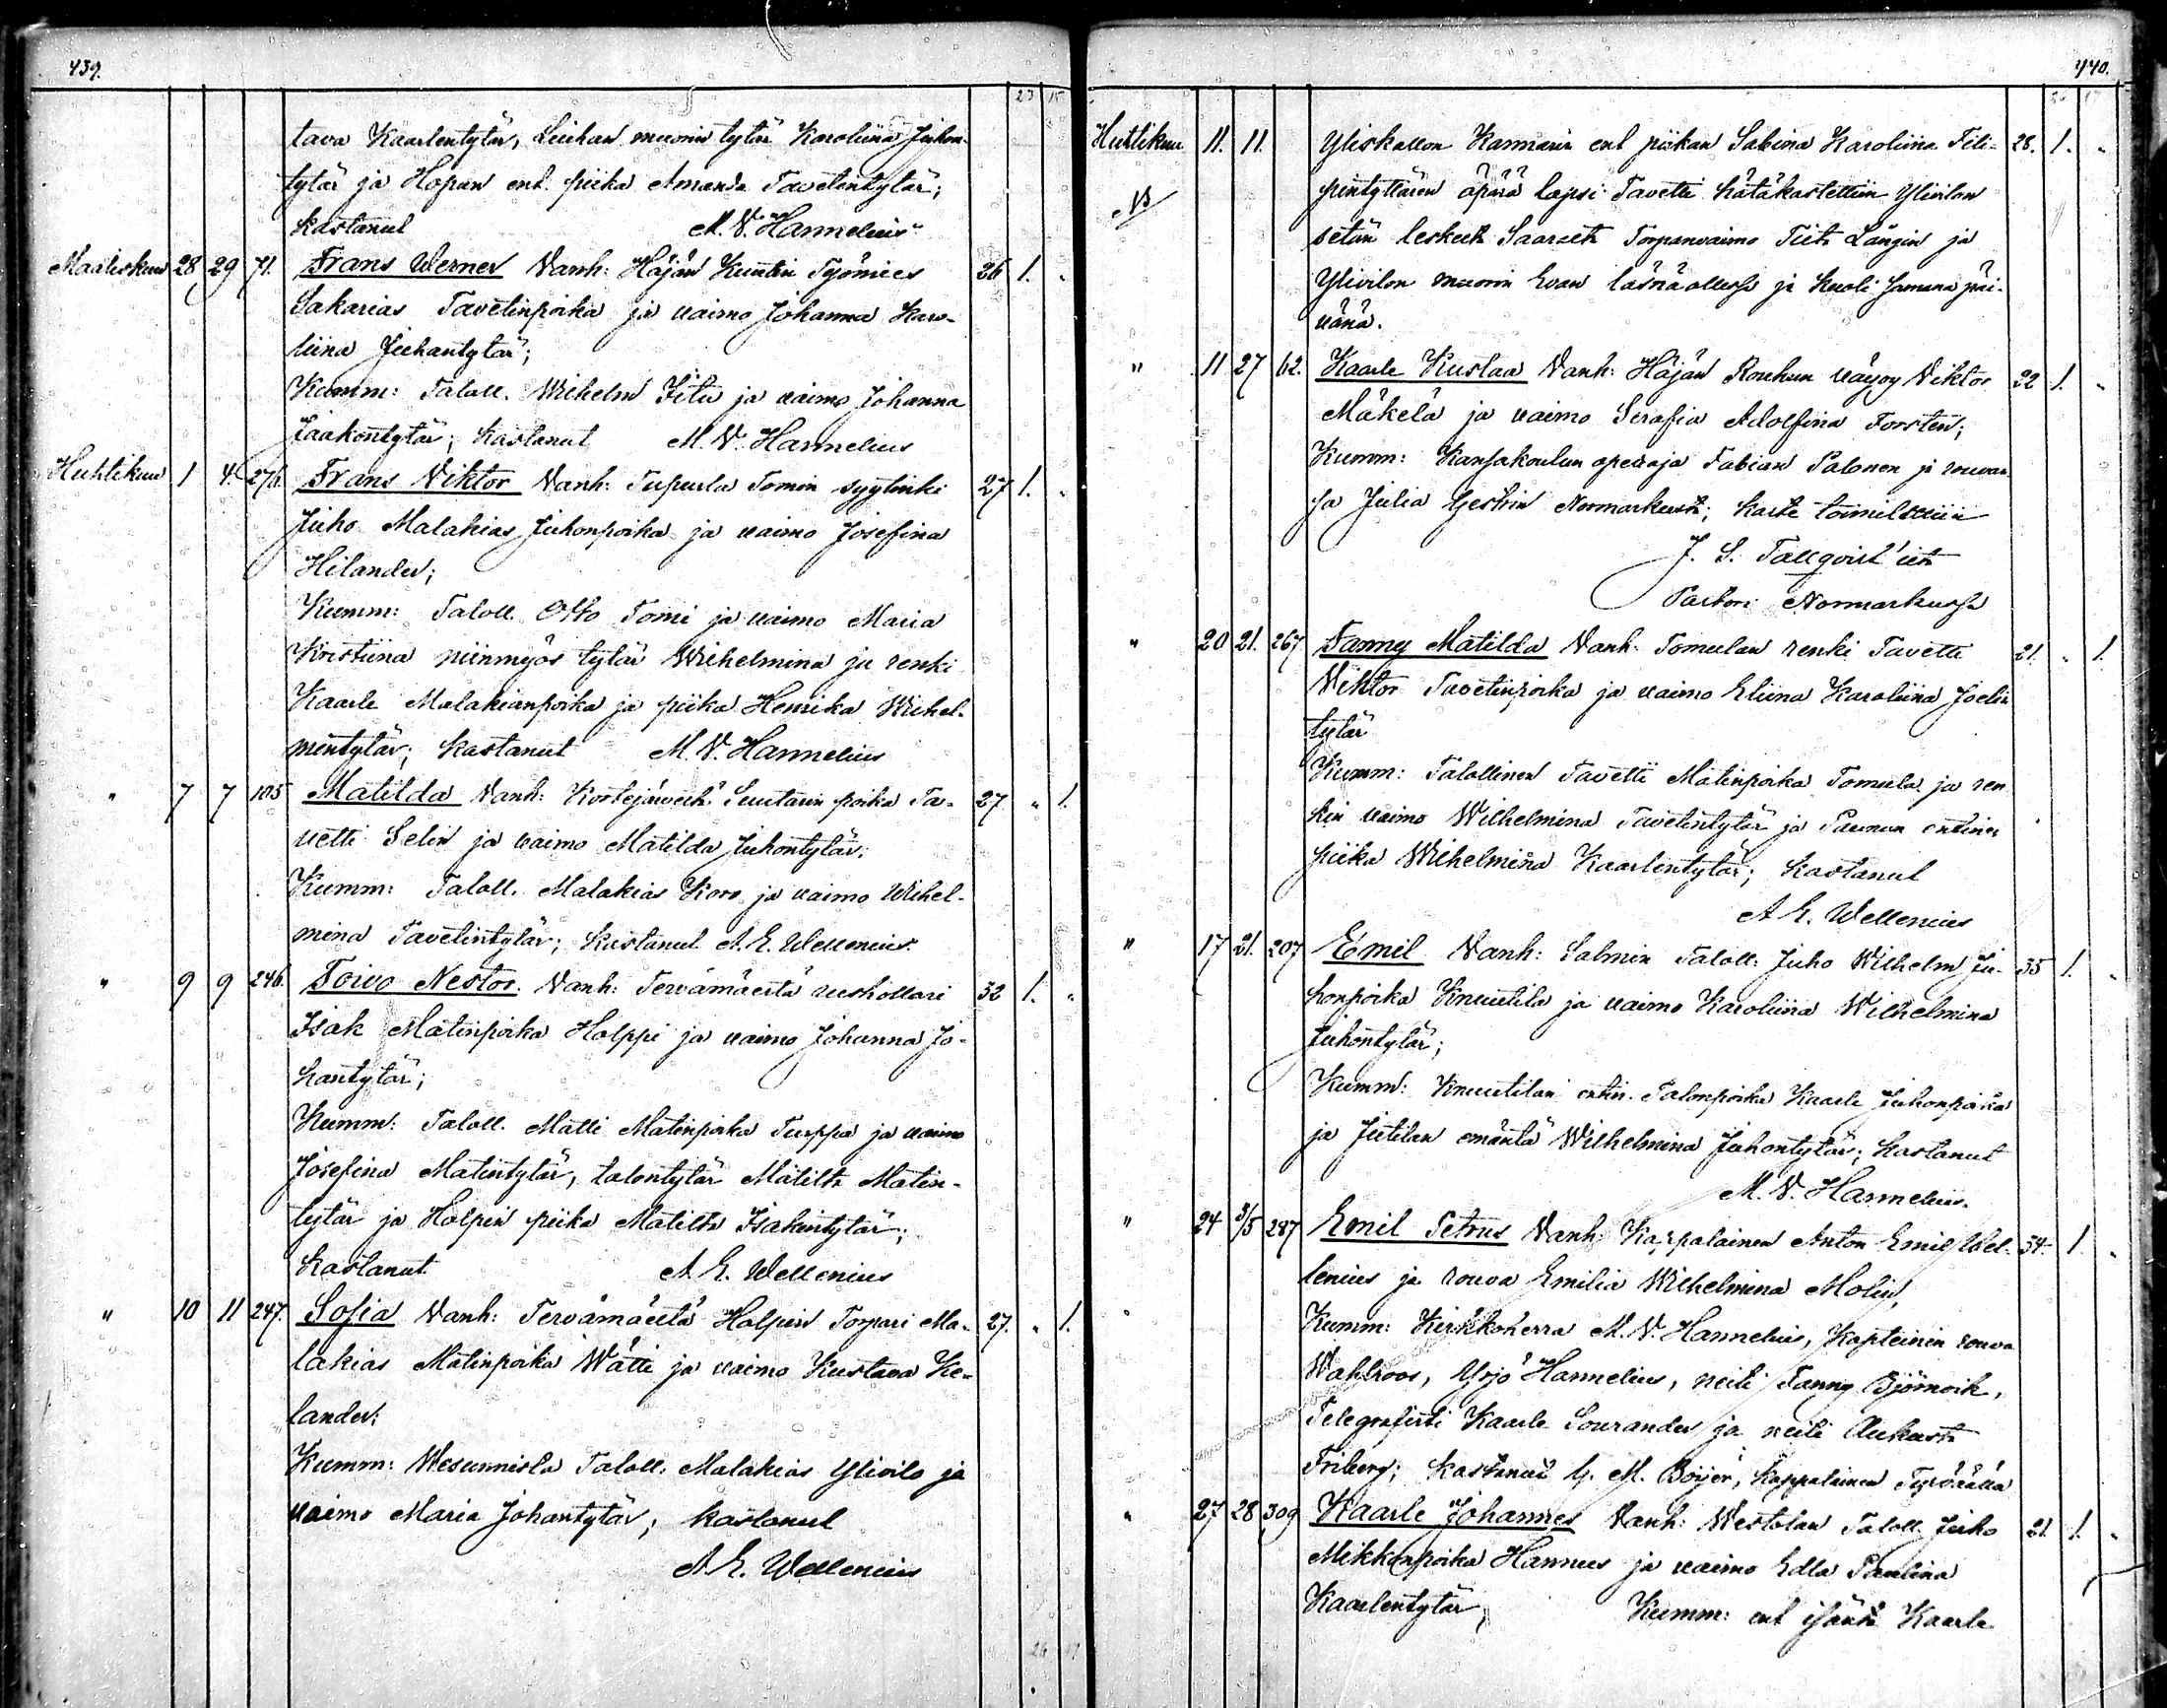 439.
23 15
tava Kaarlentytär, Liuhan muorin tytär Karoliina Juhon-
tytär ja Hopun ent. piika Amanda Tavetintytär;
kastanut M. V. Hannelius
Maaliskuu 28 29 71. Frans Werner Vanh: Häjän Kuntin Työmies 26 1. "
Sakarias Tavetinpoika ja vaimo Johanna Karo-
liina Juhantytär;
Kumm: Taloll. Wilhelm Jitu ja vaimo Johanna
Jaakontytär; kastanut M. V. Hannelius
Huhtikuu 1 4. 276. Frans Viktor Vanh: Tupurla Tomin syytinki 27 1. "
Juho Malakias Juhonpoika ja vaimo Josefina
Hilander;
Kumm: Taloll. Otto Tomi ja vaimo Maria
Kristiina niinmyös tytär Wilhelmina ja renki
Kaarle Malakianpoika ja piika Henrika Wilhel-
mintytär; kastanut M. V. Hannelius
" 7 7 105 Matilda Vanh: Suutarin poika Ta- 27 " 1.
vetti Selin ja vaimo Matilda Juhontytär;
Kumm: Taloll. Malakias Koro ja vaimo Wilhel-
mina Tavetintytär; kastanut A. E. Wellenius.
" 9 9 246. Toivo Nestor. Vanh: Tervämäestä ruskollari 32 1. "
Isak Matinpoika Holppi ja vaimo Johanna Jo-
hantytär;
Kumm: Taloll. Matti Matinpoika Turppa ja vaimo
Josefina Matintytär, talontytär Matilta Matin-
tytär ja Holpin piika Matilta Isakintytär;
kastanut A. E. Wellenius
" 10 11 247. Sofia Vanh: Tervämäestä Holpin Torpari Ma- 27. " 1.
lakias Matinpoika Wätti ja vaimo Kustava Ke-
lander;
Kumm: Wesunnisla Taloll. Malakias Ylivilo ja
vaimo Maria Johantytär; kastanut
A. E. Wellenius
26 19
440.
26 17
Huhtikuu 11. 11. Yliskallon Kamarin ent piikan Sabina Karoliina Fili- 28. 1. "
pintyttären äpärä lapsi Tavetti hätäkastettiin Ylivilon
NB
setän lesken Saaran Torpanvaimo Tiitn Längin ja
Ylivilon muorin Evan läsnäollessa ja kuoli samana päi-
vänä.
" 11 27 62. Kaarle Kustaa Vanh: Häjän Rouhun vävyn Viktor 22 1. "
Mäkelä ja vaimo Serafia Adolfina Forsten;
Kumm: Kansakoulun opettaja Fabian Palonen ja rouvan-
sa Julia Norrmarkusta; kaste toimitettiin
J. S. Tallqvist'iltä
Pastori Norrmarkussa
" 20 21. 267 Fanny Matilda Vanh: Tomulan renki Tavetti 21. " 1.
Viktor Tavetinpoika ja vaimo Eliina Karoliina Joelin
tytär
Kumm: Talollinen Tavetti Matinpoika Tomula ja ren
kin vaimo Wilhelmina Tavetintytär ja Paunun entinen
piika Wilhelmina Kaarlentytär; kastanut
A. E. Wellenius
" 17 21. 207 Emil Vanh: Salmin Taloll. Juho Wilhelm Ju- 35 1. "
honpoika Knuutila ja vaimo Karoliina Wilhelmina
Juhontytär;
Kumm: Knuutilan entin. Talonpoika Kaarle Juhonpoika
ja Jutilan emäntä Wilhelmina Juhontytär; kastanut
M. V. Hannelius.
" 24 3/5 287 Emil Petrus Vanh: Kappalainen Anton Emil Wel- 34. 1. "
lenius ja rouva Emilia Wilhelmina Molin;
Kumm: Kirkkoherra M. V. Hannelius, Kapteinin rouva
Wahlroos, Yrjö Hannelius, neiti Fanny Björnvik,
Telegrafisti Kaarle Sourander ja neiti Aukusta
Friberg; kastanut G. M. Boijer, kappalainen Tyrväällä
" 27 28 309 Kaarle Johannes Vanh: Westolan Taloll. Juho 21. 1. "
Mikkonpoika Hannus ja vaimo Edla Paulina
Kaarlentytär; Kumm: ent isäntä Kaarle